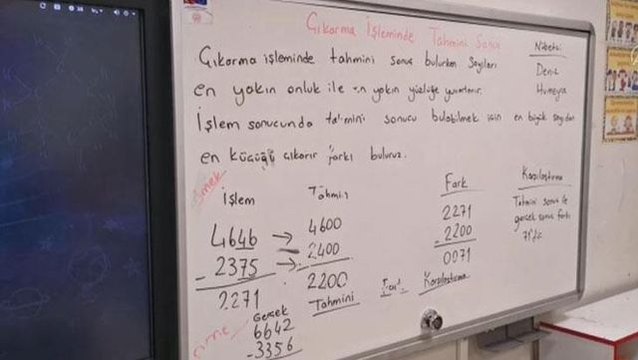 Çıkarma İşleminde Tahmini Sonuç
Nöbetçi
Deniz
Hümeyra
Çıkarma işleminde tahmini sonuç bulurken sayıları
en yakın onluk ile en yakın yüzlüğe yuvarlanır.
İşlem sonucunda tahmini sonucu bulabilmek için en büyük sayıdan
en küçüğü çıkarır farkı buluruz.
Örnek
İşlem
4646 →
- 2375 →
2271
Tahmin
4600
- 2400
2200
Tahmini
Fark
2271
- 2200
0071
Karşılaştırma
Karşılaştırma
Tahmini sonuç ile
gerçek sonuç farkı
71'dir
Gerçek
6642
- 3356